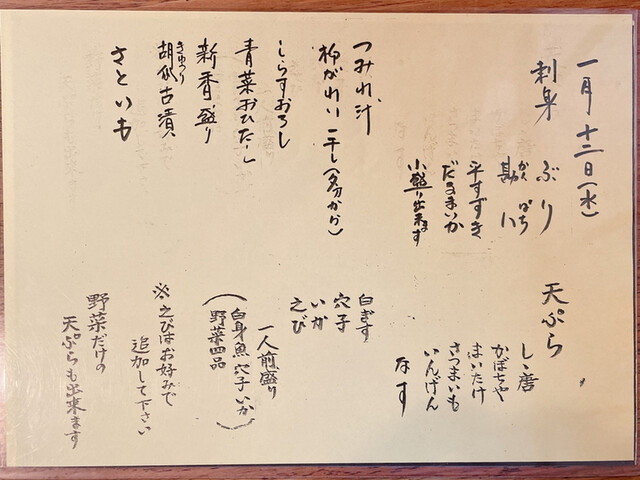 一月十二日(水)
刺身 ぶり
勘八
かんぱち
平すずき
だるまいか
小盛り出来ます
つみれ汁
柳がれい一干し
しらすおろし
青菜おひたし
新香盛り
胡瓜古漬
きゅうり
さといも
天ぷら
しゝ唐
かぼちゃ
まいたけ
さつまいも
いんげん
なす
白ぎす
穴子
いか
えび
一人前盛り
(白身魚 穴子 いか
野菜四品)
※えびはお好みで
追加して下さい
野菜だけの
天ぷらも出来ます